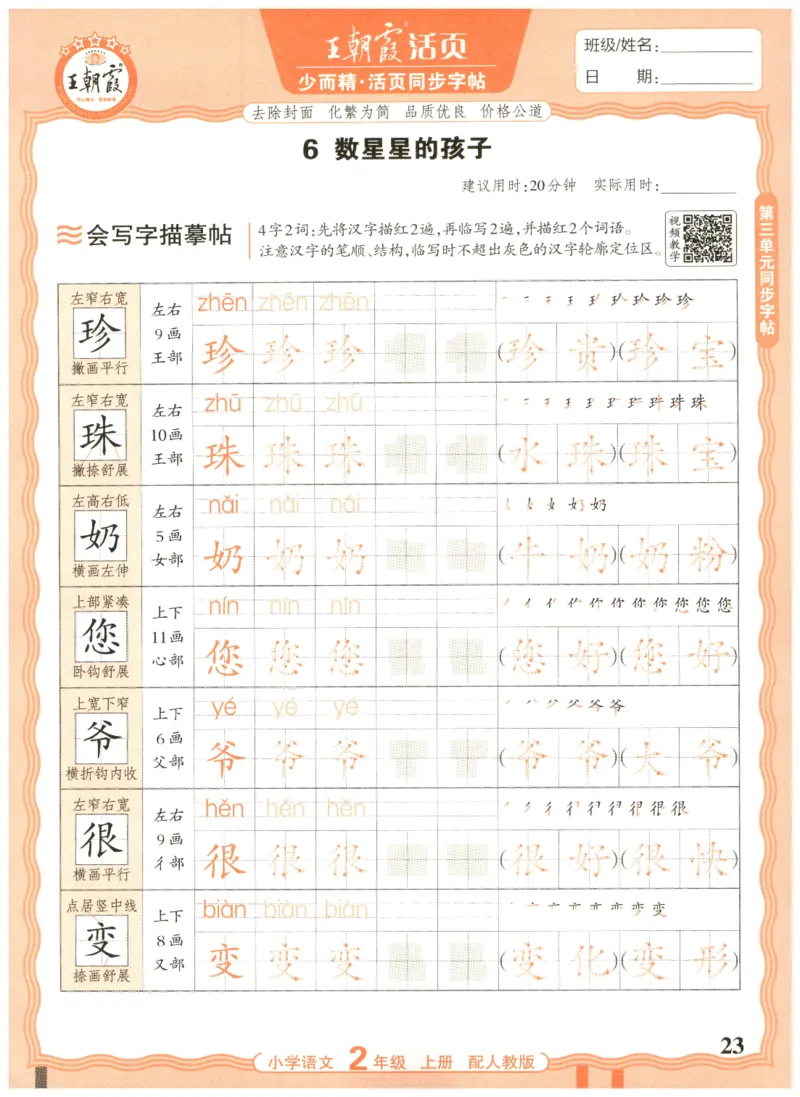 王朝霞
王朝霞®活页
少而精·活页同步字帖
班级/姓名:
日 期:
去除封面 化繁为简 品质优良 价格公道
6 数星星的孩子
建议用时:20分钟 实际用时:
会写字描摹帖
4字2词:先将汉字描红2遍,再临写2遍,并描红2个词语。
注意汉字的笔顺、结构,临写时不超出灰色的汉字轮廓定位区。
视频教学
第三单元同步字帖
左窄右宽
珍
撇画平行
左右
9画
王部
zhēn zhēn zhēn
珍 珍 珍 (珍 贵)(珍 宝)
左窄右宽
珠
撇捺舒展
左右
10画
王部
zhū zhū zhū
珠 珠 珠 (水 珠)(珠 宝)
左高右低
奶
横画左伸
左右
5画
女部
nǎi nǎi nǎi
奶 奶 奶 (牛 奶)(奶 粉)
上部紧凑
您
卧钩舒展
上下
11画
心部
nín nín nín
您 您 您 (您 好)(您 好)
上宽下窄
爷
横折钩内收
上下
6画
父部
yé yé yé
爷 爷 爷 (爷 爷)(大 爷)
左窄右宽
很
横画平行
左右
9画
彳部
hěn hěn hěn
很 很 很 (很 好)(很 快)
点居竖中线
变
捺画舒展
上下
8画
又部
biàn biàn biàn
变 变 变 (变 化)(变 形)
小学语文 2年级 上册 配人教版
23